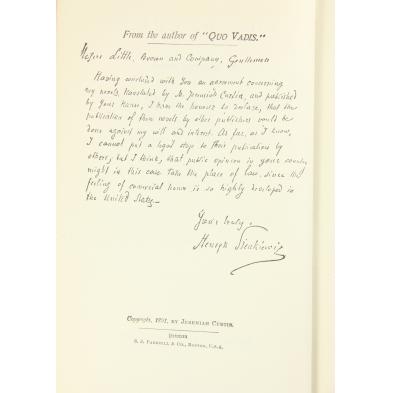 From the author of "QUO VADIS."
Messrs Little, Brown and Company, Gentlemen
Having concluded with You an agreement concerning
my novels, translated by Mr. Jeremiah Curtin, and published
by Your House, I have the honour to declare, that the
publication of these novels by other publishers would be
done against my will and interest. As far, as I know,
I cannot put a legal stop to their publications by
others, but I think, that public opinion in your country
might in this case take the place of law, since the
feeling of comercial honor is so highly developed in
the United States.
Yours truly
Henryk Sienkiewicz
Copyright, 1897, BY JEREMIAH CURTIN.
S. J. PARKHILL & CO., BOSTON, U.S.A.